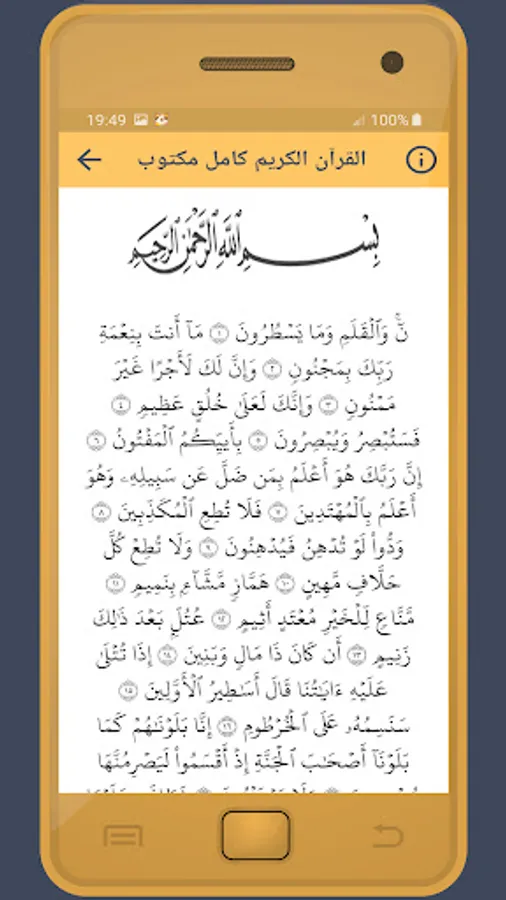 19:49
100%
القرآن الكريم كامل مكتوب
بِسْمِ اللَّهِ الرَّحْمَٰنِ الرَّحِيمِ
نٓ ۚ وَٱلْقَلَمِ وَمَا يَسْطُرُونَ ١ مَآ أَنتَ بِنِعْمَةِ
رَبِّكَ بِمَجْنُونٍ ٢ وَإِنَّ لَكَ لَأَجْرًا غَيْرَ
مَمْنُونٍ ٣ وَإِنَّكَ لَعَلَىٰ خُلُقٍ عَظِيمٍ ٤
فَسَتُبْصِرُ وَيُبْصِرُونَ ٥ بِأَييِّكُمُ ٱلْمَفْتُونُ ٦
إِنَّ رَبَّكَ هُوَ أَعْلَمُ بِمَن ضَلَّ عَن سَبِيلِهِۦ وَهُوَ
أَعْلَمُ بِٱلْمُهْتَدِينَ ٧ فَلَا تُطِعِ ٱلْمُكَذِّبِينَ ٨
وَدُّوا۟ لَوْ تُدْهِنُ فَيُدْهِنُونَ ٩ وَلَا تُطِعْ كُلَّ
حَلَّافٍ مَّهِينٍ ١٠ هَمَّازٍ مَّشَّآءٍۭ بِنَمِيمٍ ١١
مَّنَّاعٍ لِّلْخَيْرِ مُعْتَدٍ أَثِيمٍ ١٢ عُتُلٍّۭ بَعْدَ ذَٰلِكَ
زَنِيمٍ ١٣ أَن كَانَ ذَا مَالٍ وَبَنِينَ ١٤ إِذَا تُتْلَىٰ
عَلَيْهِ ءَايَـٰتُنَا قَالَ أَسَـٰطِيرُ ٱلْأَوَّلِينَ ١٥
سَنَسِمُهُۥ عَلَى ٱلْخُرْطُومِ ١٦ إِنَّا بَلَوْنَـٰهُمْ كَمَا
بَلَوْنَآ أَصْحَـٰبَ ٱلْجَنَّةِ إِذْ أَقْسَمُوا۟ لَيَصْرِمُنَّهَا